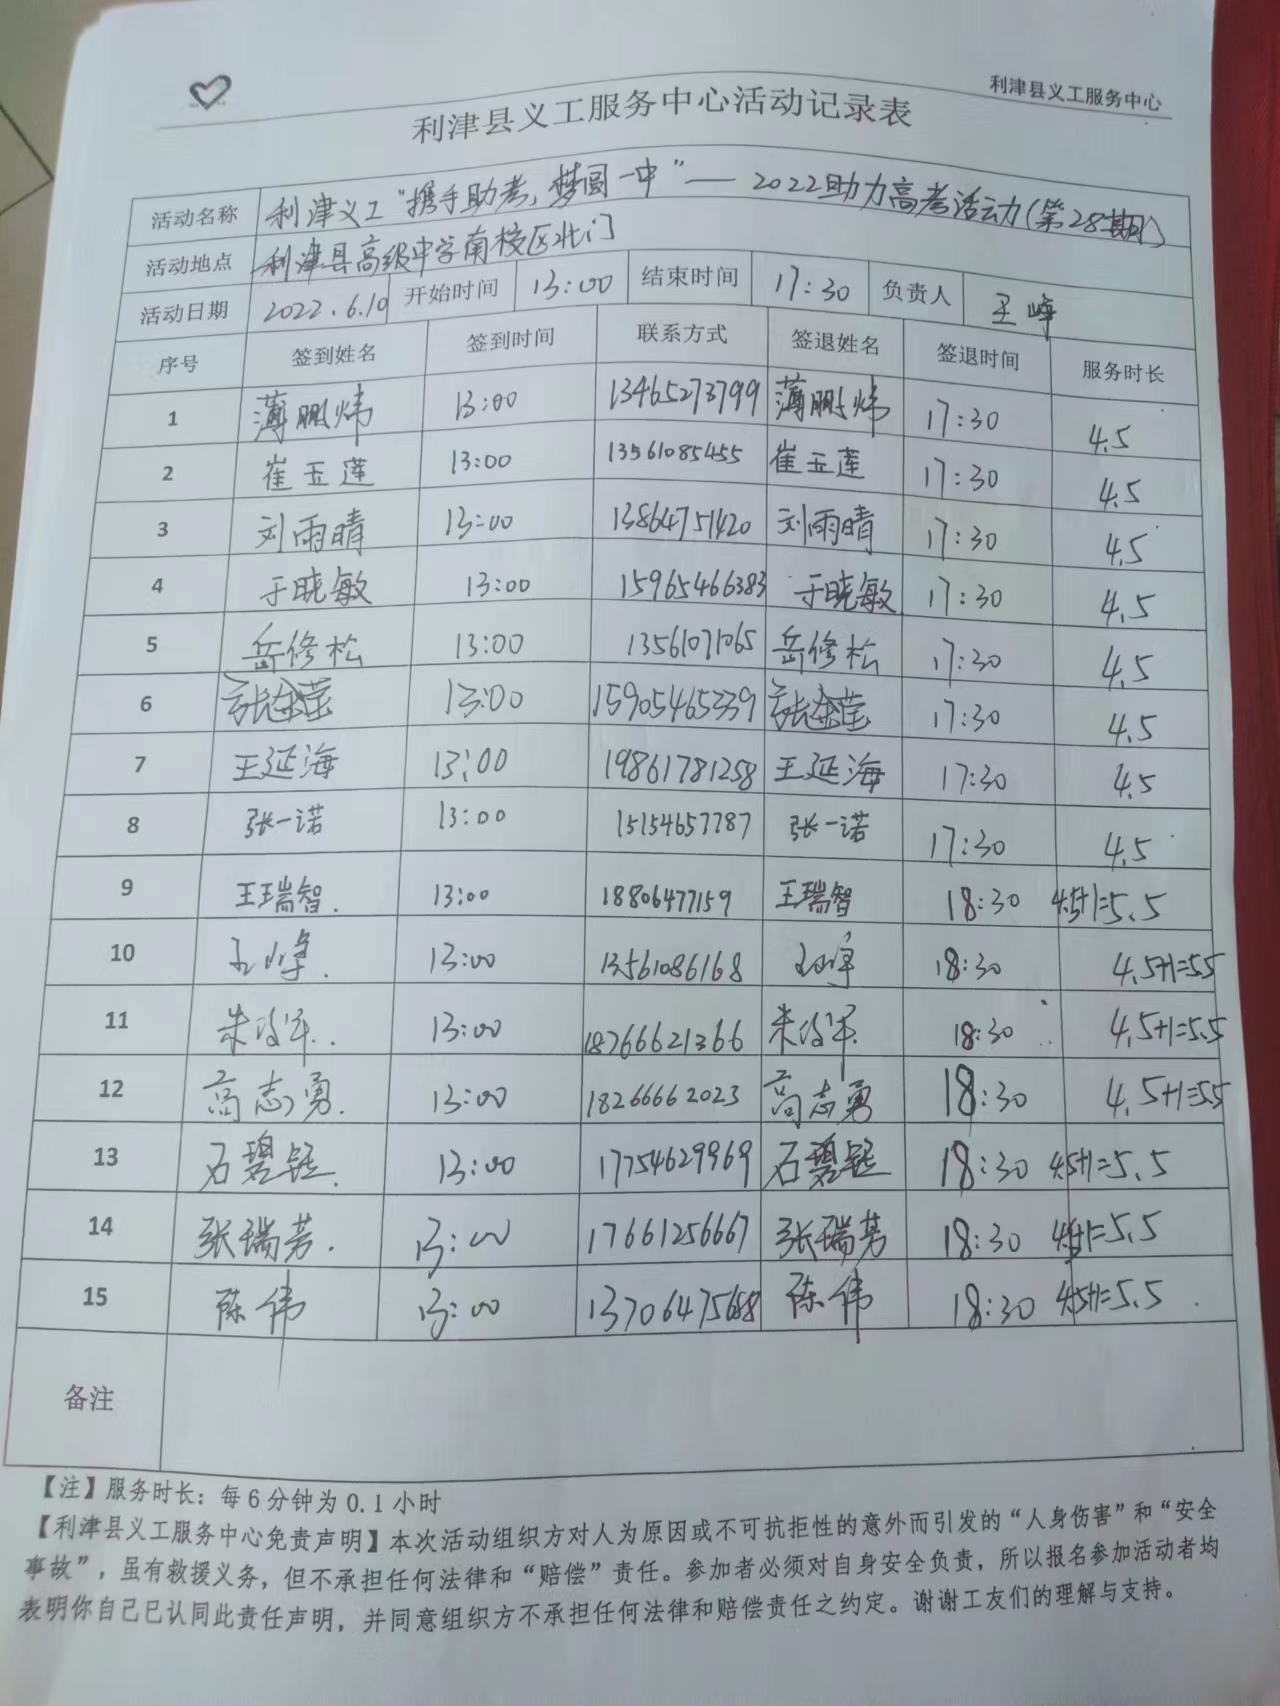 利津县义工服务中心
利津县义工服务中心活动记录表
活动名称 利津义工“携手助考，梦圆一中”——2022助力高考活动(第28期)
活动地点 利津县高级中学南校区北门
活动日期 2022.6.10 开始时间 13:00 结束时间 17:30 负责人 王峰
序号 签到姓名 签到时间 联系方式 签退姓名 签退时间 服务时长
1 薄鹏炜 13:00 13465273799 薄鹏炜 17:30 4.5
2 崔玉莲 13:00 13561085455 崔玉莲 17:30 4.5
3 刘雨晴 13:00 13864751420 刘雨晴 17:30 4.5
4 于晓敏 13:00 15965466383 于晓敏 17:30 4.5
5 岳修松 13:00 13561071065 岳修松 17:30 4.5
6 张金莹 13:00 15905465339 张金莹 17:30 4.5
7 王延海 13:00 19861781258 王延海 17:30 4.5
8 张一诺 13:00 15154657787 张一诺 17:30 4.5
9 王瑞智. 13:00 18806477159 王瑞智 18:30 4.5+1=5.5
10 王峰. 13:00 13561086168 王峰 18:30 4.5+1=5.5
11 朱 军. 13:00 18766621366 朱 军. 18:30 4.5+1=5.5
12 高志勇. 13:00 18266662023 高志勇 18:30 4.5+1=5.5
13 石碧 . 13:00 17754629969 石碧 18:30 4.5+1=5.5
14 张瑞芳. 13:00 17661256667 张瑞芳 18:30 4.5+1=5.5
15 陈伟 13:00 陈伟 18:30 4.5+1=5.5
备注
【注】服务时长：每6分钟为0.1小时
【利津县义工服务中心免责声明】本次活动组织方对人为原因或不可抗拒性的意外而引发的“人身伤害”和“安全
事故”，虽有救援义务，但不承担任何法律和“赔偿”责任。参加者必须对自身安全负责，所以报名参加活动者均
表明你自己已认同此责任声明，并同意组织方不承担任何法律和赔偿责任之约定。谢谢工友们的理解与支持。